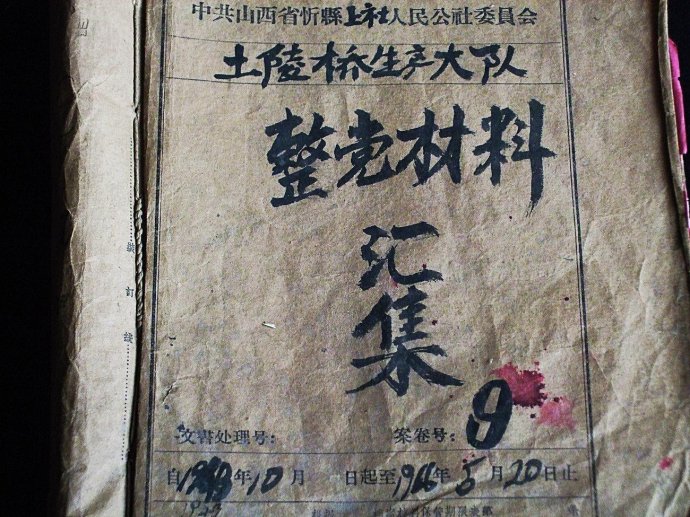 中共山西省忻縣上社人民公社委員会
土陵桥生产大队
整党材料
汇集
文書处理号： 案卷号：9
自19 年10月 日起至1966年5月20日止
装订线